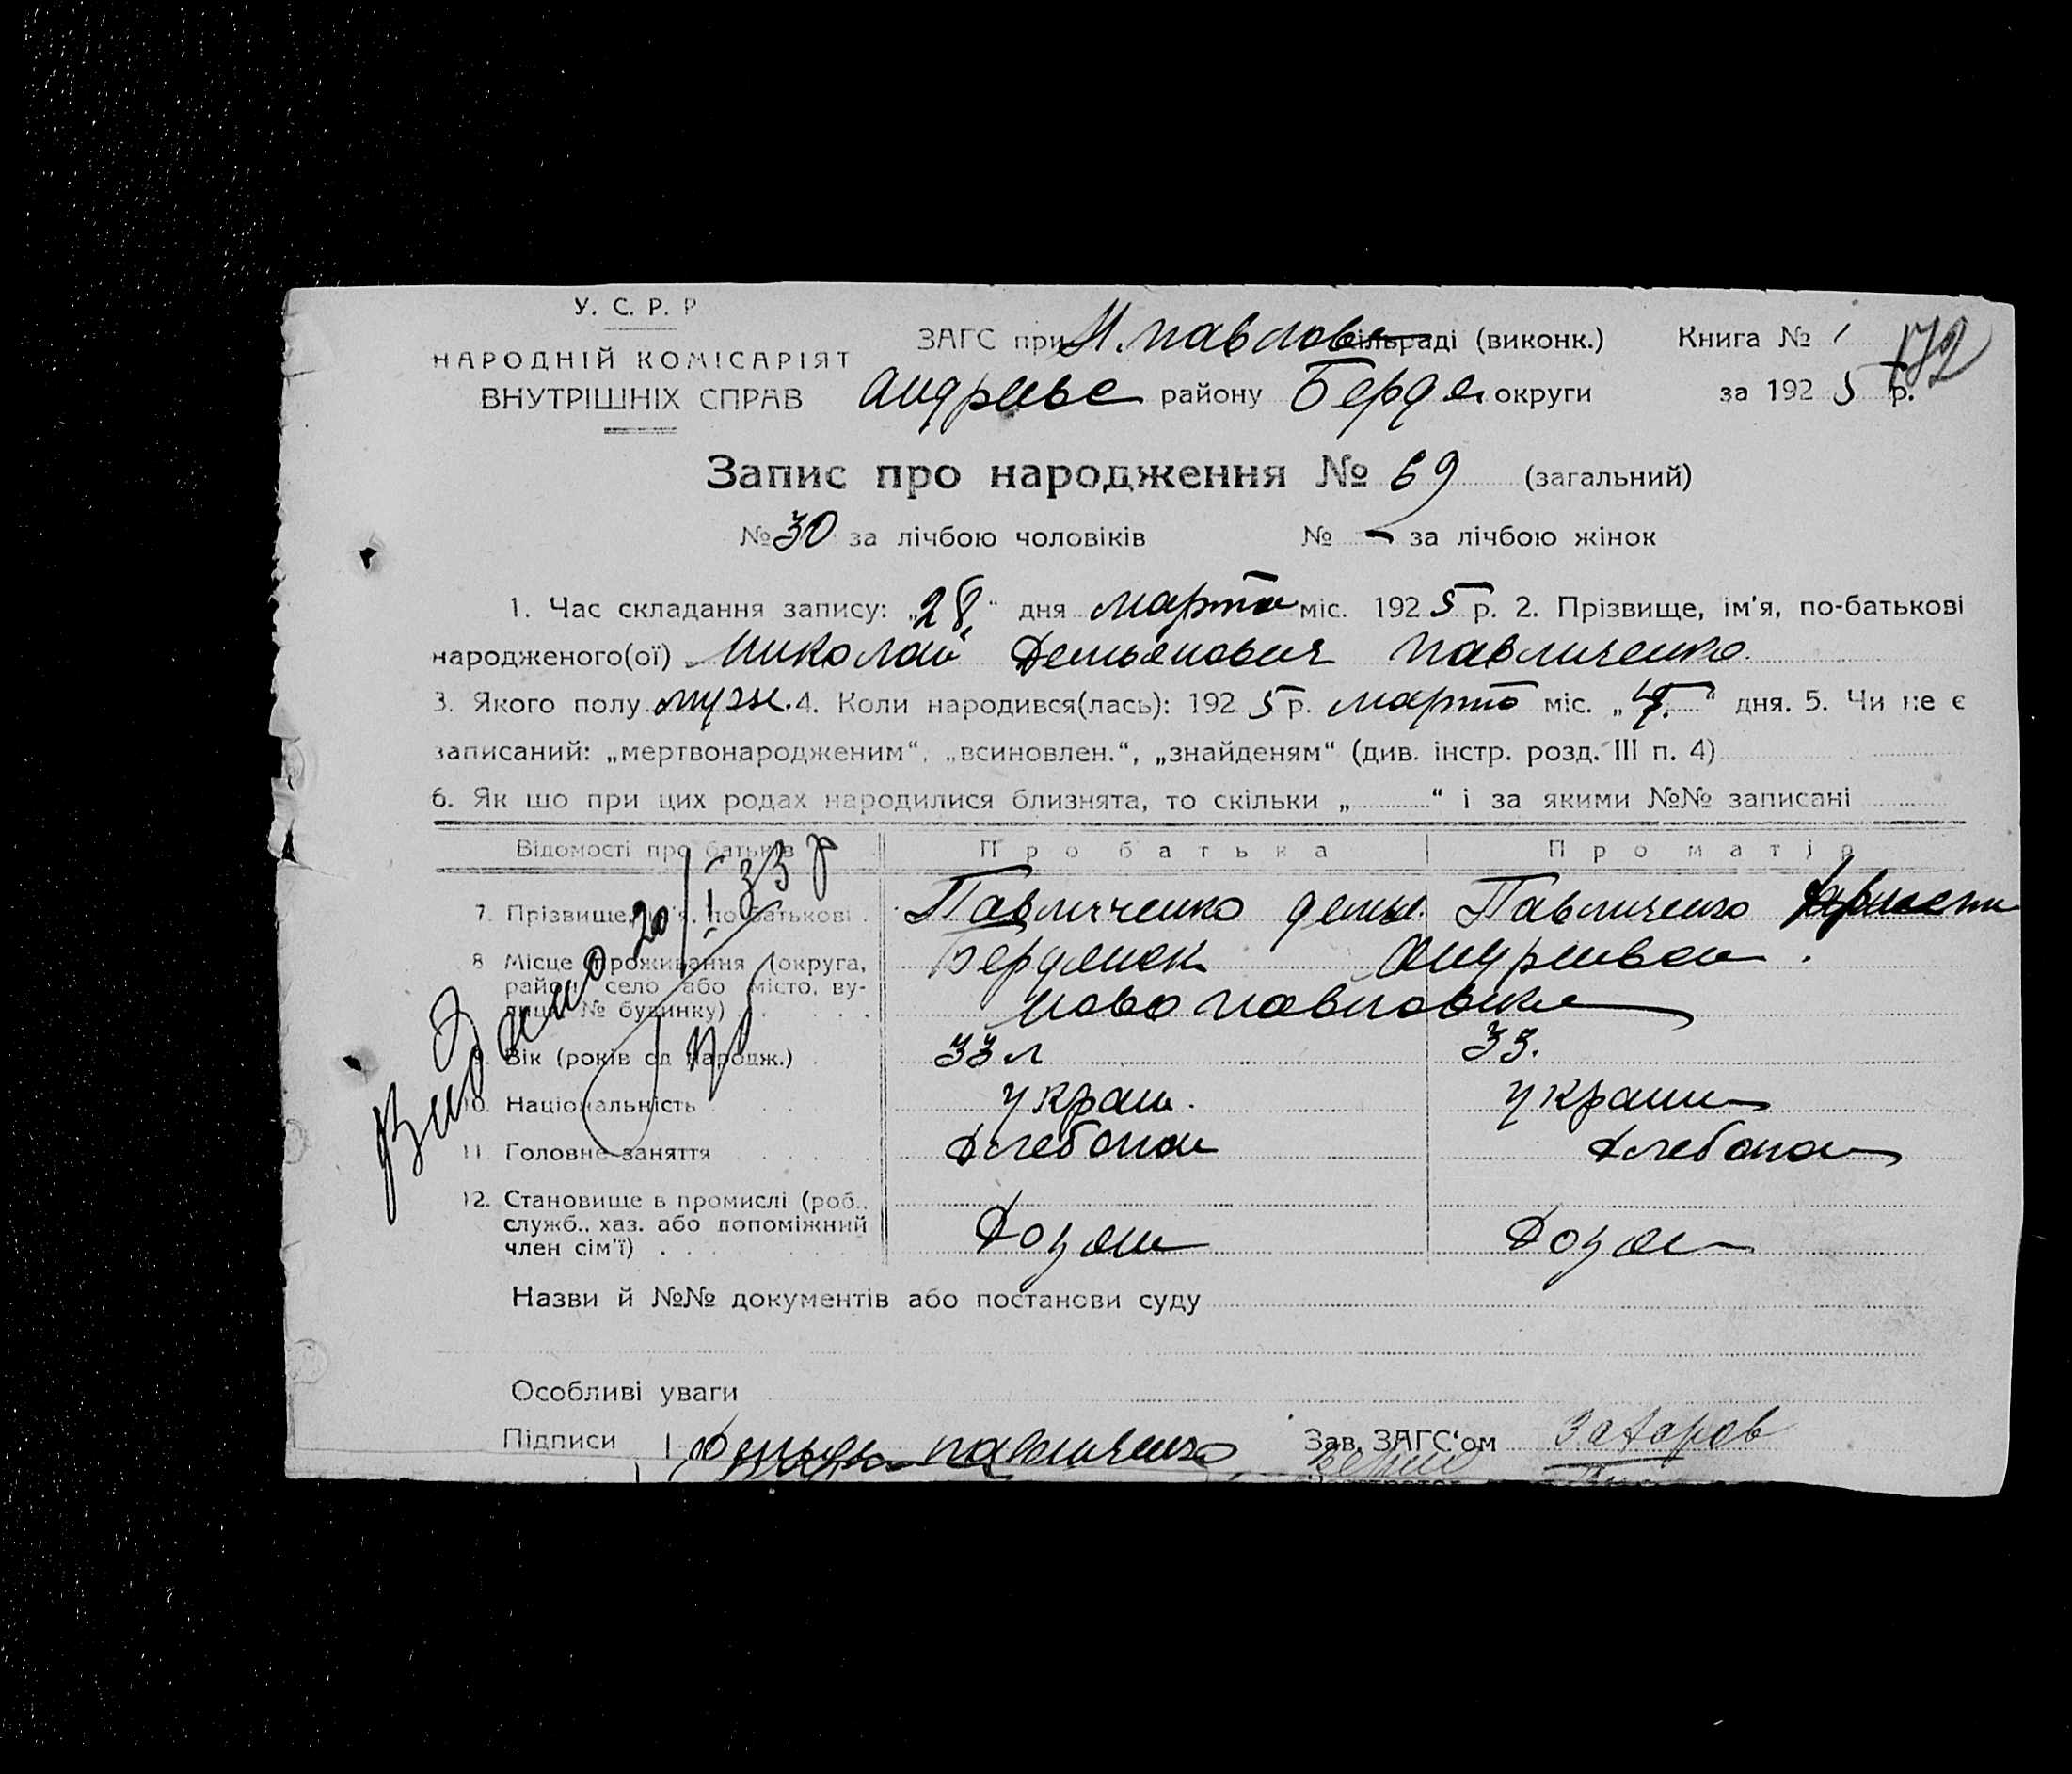 У. С. Р. Р
НАРОДНІЙ КОМІСАРІЯТ
ВНУТРІШНІХ СПРАВ
ЗАГС при Н. павловс сільраді (виконк.) Книга № 1 172
андреевс району Бердя округи за 1925 р.
Запис про народження № 69 (загальний)
№ 30 за лічбою чоловіків № - за лічбою жінок
1. Час складання запису: „28“ дня марта міс. 1925 р. 2. Прізвище, ім'я, по-батькові
народженого(ої) Николай Демьянович Павличенко
3. Якого полу муж. 4. Коли народився(лась): 1925 р. марта міс. „ “ дня. 5. Чи не є
записаний: „мертвонародженим“, „всиновлен.“, „знайденям“ (див. інстр. розд. III п. 4)
6. Як що при цих родах народилися близнята, то скільки „ “ і за якими №№ записані
Відомості про батьків Про батька Про матір
7. Прізвище, ім'я, по-батькові Павличенко демья Павличенко
8 Місце проживання (округа, район, село або місто, ву-лиця, № будинку) Бердянск Андреевка
Ново павловка
9. Вік (років од народж.) 33 л 33.
10. Національність украин. украин
11. Головне заняття Хлебопаш Хлебопа
12. Становище в промислі (роб., служб., хаз. або допоміжний член сім'ї) Хозяин Хозяй
Видано 20/I-33 р
Назви й №№ документів або постанови суду
Особливі уваги
Підписи Демьян павличенко Зав. ЗАГС'ом Захаров